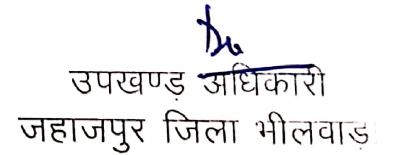 उपखण्ड अधिकारी
जहाजपुर जिला भीलवाड़